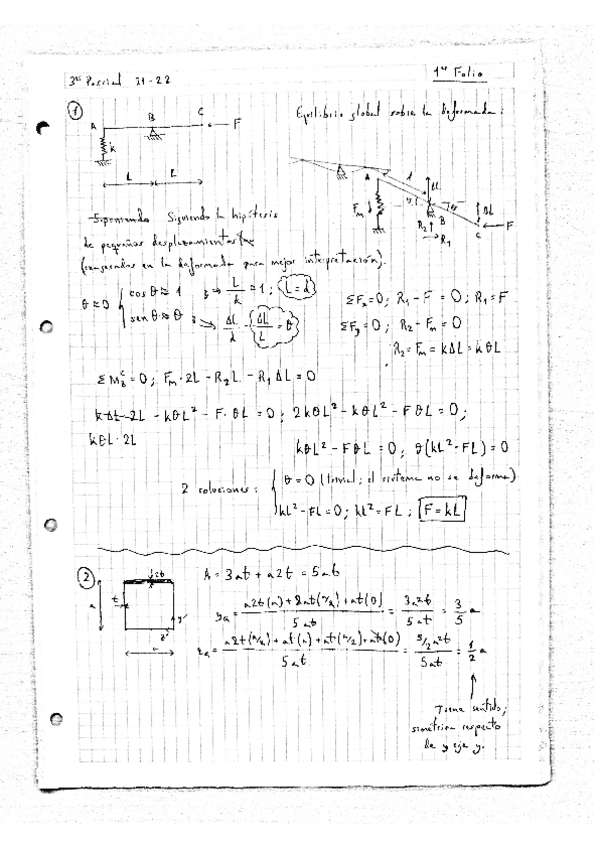 3er Parcial 21-22
1er Folio
1
A B C F
k
L L
Equilibrio global sobre la deformada:
A ΔL
Fm B ΔL
R2 C F
R1
Siguiendo la hipótesis
de pequeños desplazamientos
(exagerados en la deformada para mejor interpretación).
θ≈0 { cos θ ≈ 1 → L/d ≈ 1 ; L = d
sen θ ≈ θ → ΔL/d = ΔL/L = θ
ΣFx=0; R1 - F = 0; R1 = F
ΣFy=0; R2 - Fm = 0
R2 = Fm = kΔL = kθL
ΣM_B^C = 0; Fm·2L - R2L - R1ΔL = 0
kΔL·2L - kθL² - F·θL = 0; 2kθL² - kθL² - FθL = 0;
kθL·2L
kθL² - FθL = 0; θ(kL² - FL) = 0
2 soluciones: { θ = 0 (trivial; el sistema no se deforma)
kL² - FL = 0; kL² = FL; F = kL
2
2t
t
a
y'
z'
A = 3at + a2t = 5at
yG = (a2t(a) + 2at(a/2) + at(0))/5at = 3a²t/5at = 3/5 a
zG = (a2t(a/2) + at(a) + at(a/2) + at(0))/5at = 5/2 a²t/5at = 1/2 a
Tiene sentido;
simetría respecto
de y eje y.